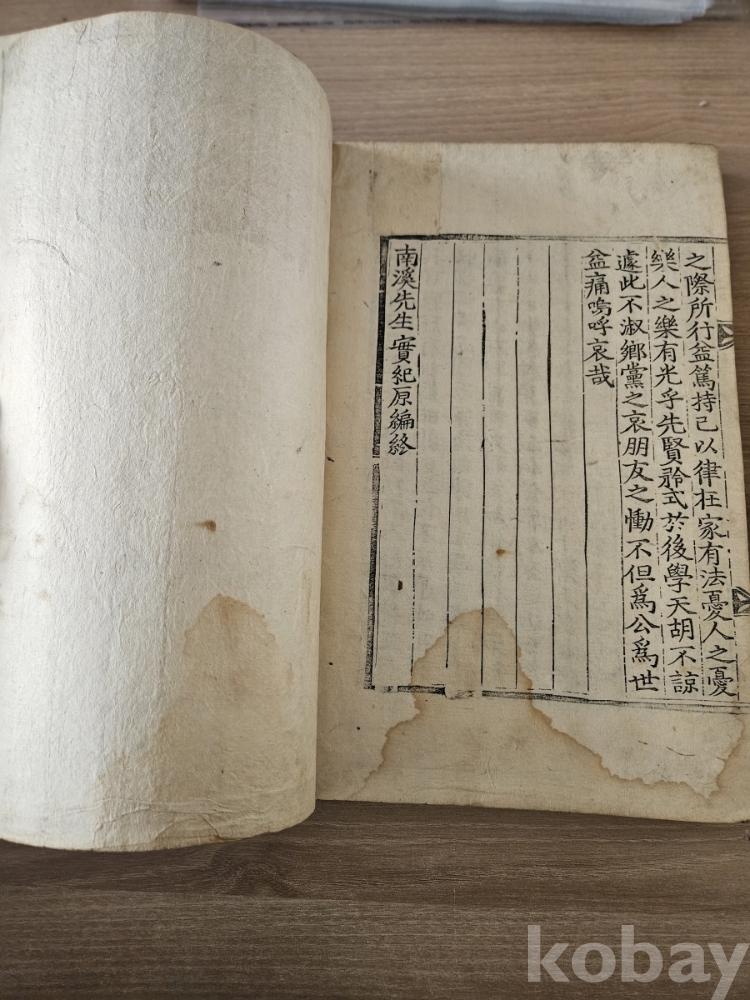 之際所行益篤持己以律在家有法憂人之憂
樂人之樂有光乎先賢矜式於後學天胡不諒
遽此不淑鄉黨之哀朋友之慟不但爲公爲世
益痛嗚呼哀哉
南溪先生實紀原編終
kobay